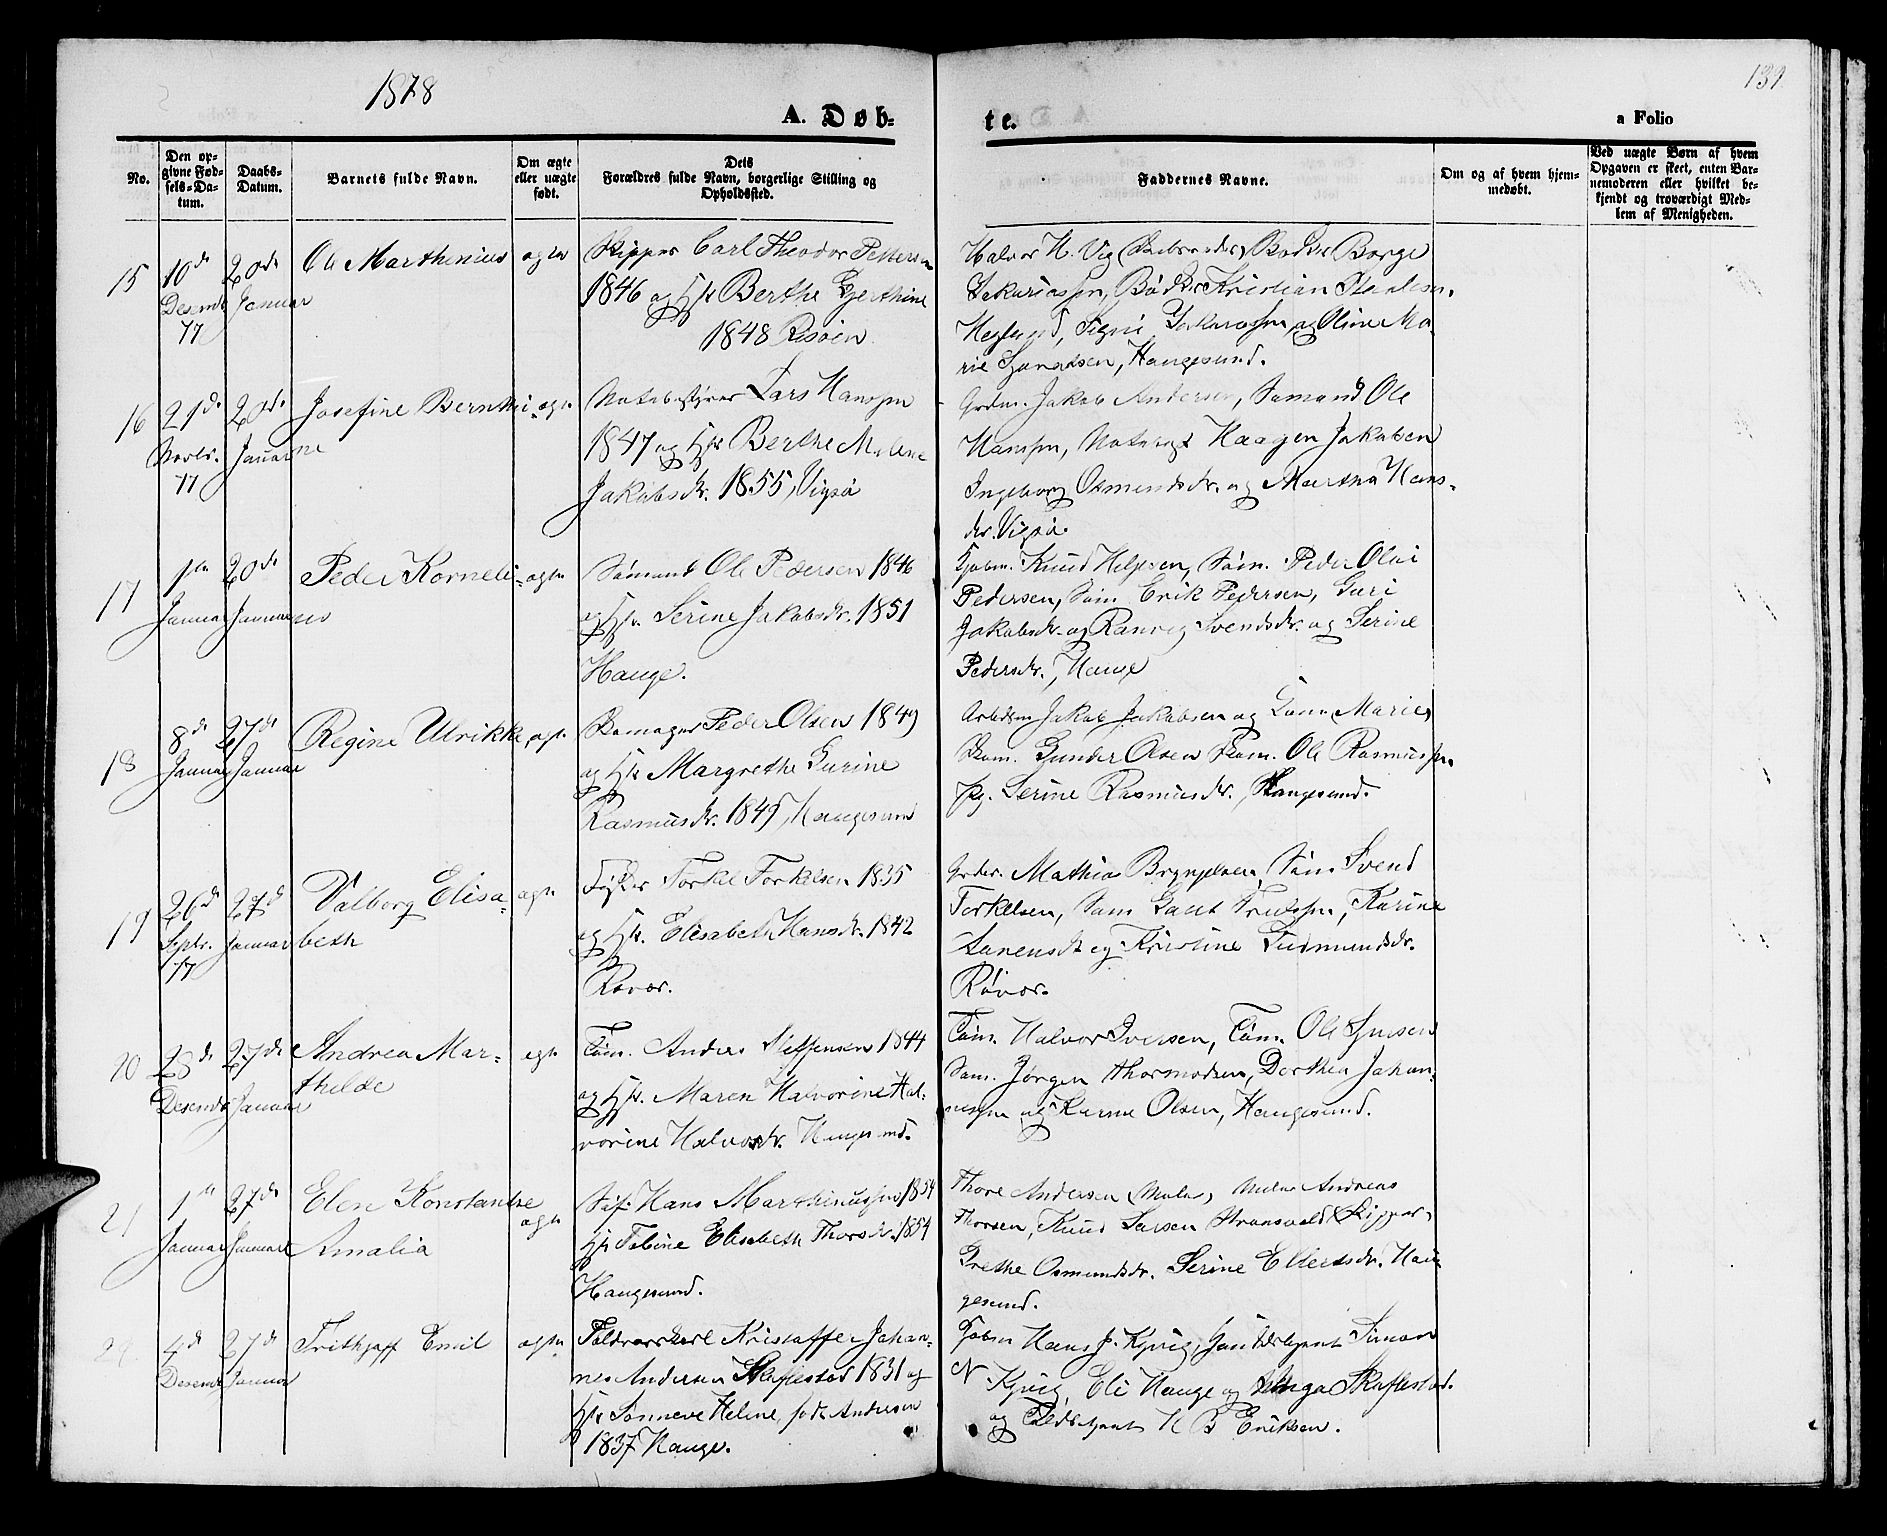 1878
139
A. Døb-
te.
a Folio
No.
Den op-
givne Fød-
sels-Da-
tum.
Daabs-
Datum.
Barnets fulde Navn.
Om ægte
eller uægte
født.
Dets
Forældres fulde Navn, borgerlige Stilling og
Opholdssted.
Faddernes Navne.
Om og af hvem hjem-
medøbt.
Ved uægte Børn af hvem
Opgaven er skeet, enten Bar-
nemoderen eller hvilket be-
kjendt og troværdigt Med-
lem af Menigheden.
15
10de
Desembr
77
20de
Januar
Ole Marthinius
ægte
Skipper Carl Theodor Pettersen
1846 og Hst. Berthe Gjerthine
1848 Risøen
Halvor H. Vig Bødker Børge
Sakariassen, Bødker Kristian
Heglund, Signi Sakariassen og Oline Ma-
rie Haugesund.
16
21de
Novbr.
77
20de
Januar
Josefine Bernthi-
ne
ægte
Notebestyrer Lars Hanssen
1847 og Hst. Berthe Malene
Jakobsdr. 1855, Vigsø
Grdm. Jakob Andersen, Sømand Ole
Hanssen, Haagen Jakobsen
Ingeborg Osmundsdr. og Martha Hans-
dr. Vigsø.
17
1ste
Januar
20de
Januar
Peder Korneli-
us
ægte
Sømand Ole Pedersen 1846
og Hst. Serine Jakobsdr. 1851
Hauge.
Gjøbm. Knud Helgesen, Søm. Peder Olai
Pedersen, Søm. Erik Pedersen, Guri
Jakobsdr. og Ranveig Svendsdr. og Serine
Pedersdr., Hauge
18
8de
Januar
27de
Januar
Regine Ulrikke
ægte
Skomager Peder Olsen 1849
og Hst. Margrethe Gurine
Rasmusdr. 1849, Haugesund
Arbdsm Jakob Jakobsen og Marie,
Skom. Gunder Olsen Skom. Ole Rasmussen
Pg. Serine Rasmusdr., Haugesund.
19
26de
Septr.
77
27de
Januar
Valborg Elisa-
beth
ægte
Torkel Torkelsen 1835
og Hst. Elisabeth Hansdr. 1842
Røvær.
Mathias Brynjelsen, Søm Svend
Torkelsen, Søm Gaut Karine
og Kristine Gudmundsdr.
Røvær.
20
23de
Desembr
27de
Januar
Andrea Mar-
thilde
ægte
Tøm. Anders Steffensen 1844
og Hst. Maren Halvorine Hal-
vorine Halvorsdr. Haugesund.
Tøm. Halvor Iversen, Tøm. Ole
Søm. Jørgen Thormodsen, Dorthea Johan-
nessen og Karine Olsen, Haugesund.
21
1ste
Januar
27de
Januar
Elen Konstantse
Amalia
ægte
Hans Marthinussen 1854
Hst Tobine Elisabeth Thorsdr. 1854
Haugesund.
Thore Andersen Maler, Maler Andreas
Thorsen, Knud Larsen Skipper,
Grethe Osmundsdr. Serine Ellertsdr. Hau-
gesund.
22
4de
Desembr
27de
Januar
Frithjoff Emil
ægte
Kristoffer Johan-
nes Andersen Skeflestad 1831 og
Hst Sønneve Heline, født Andersen
1837 Hauge.
Gjøbm Hans J. Kyvig, Simon
N. Kyvig, Eli Hauge og Inga Skeflestad.
og H B Eriksen.